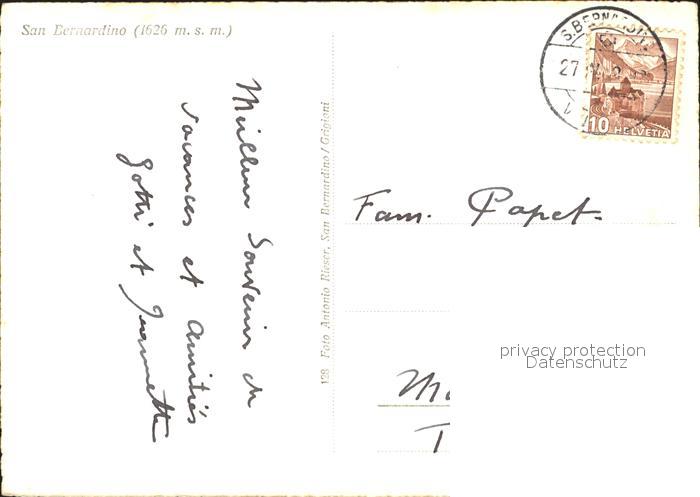 San Bernardino (1626 m. s. m.)
Meilleur Souvenir de
vacances et Amitiés
Gotti et Jeannette
128 Foto Antonio Rieser, San Bernardino/Grigioni
S.BERNARDINO
27
10 HELVETIA
Fam. Papet.
privacy protection
Datenschutz